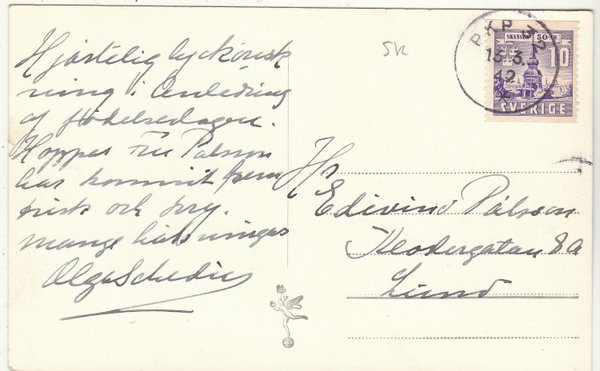 Hjärtelig lyckönsk
ning i anledning
af födelsedagen.
Hoppas Fru Pålsson
har kommit hem
frisk och kry.
många hälsningar
Olga Schedin
SK
PKP 32
15.3.
42
SKANSEN 50 ÅR
10
SVERIGE
Hr
Edivin Pålsson
Klostergatan 8a
Lund